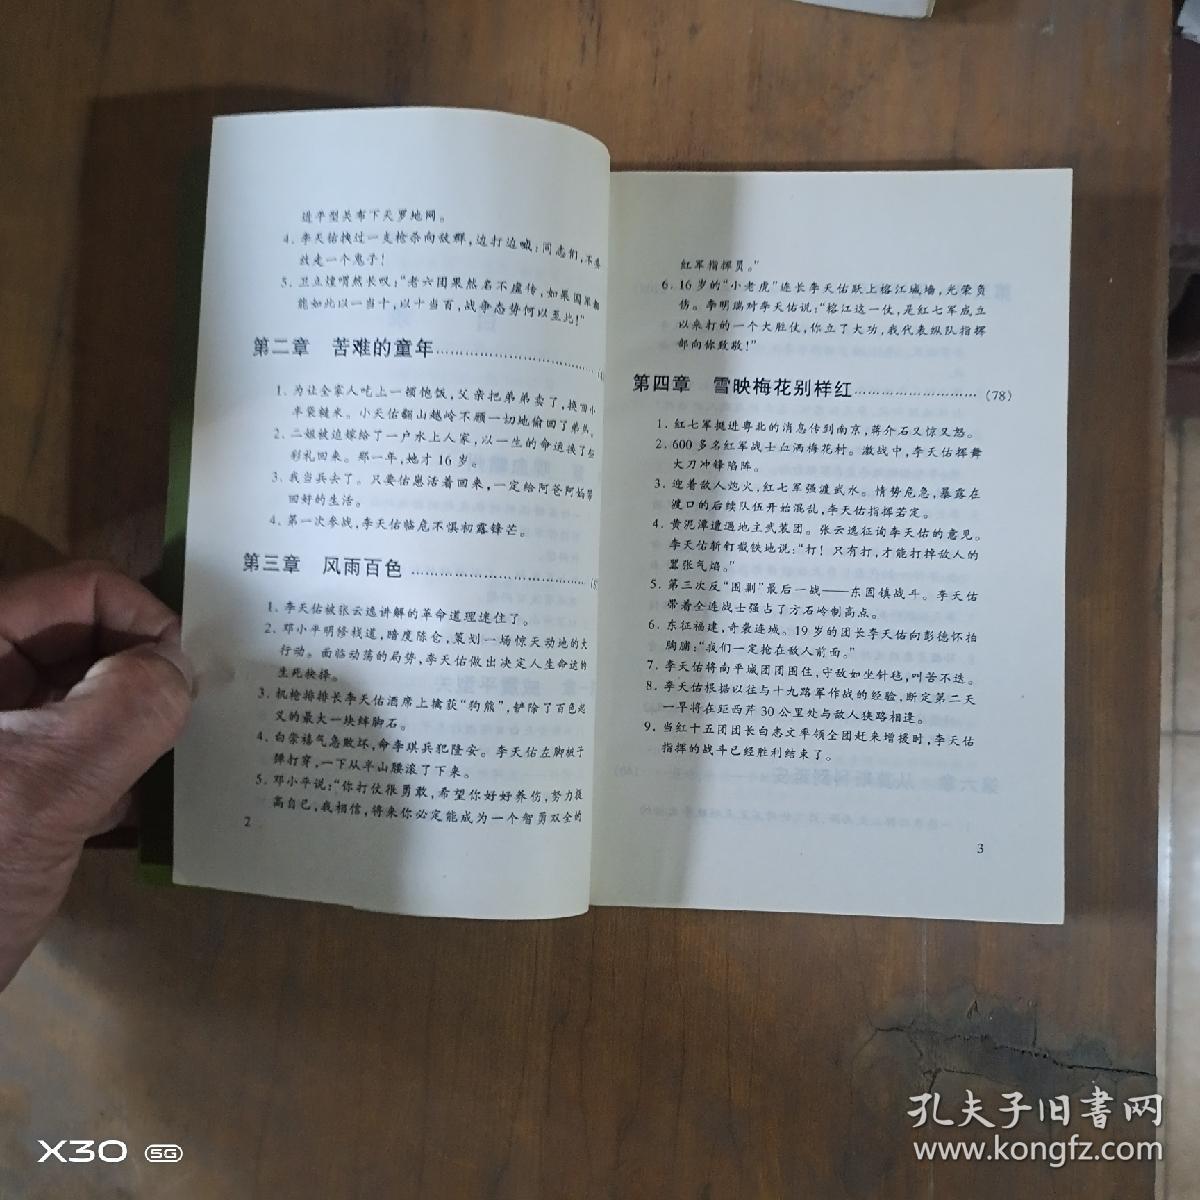 道平型关布下天罗地网。
4. 李天佑拽过一支枪杀向敌群，边打边喊：同志们，不要
放走一个鬼子！
5. 卫立煌喟然长叹：“老六团果然名不虚传，如果国军都
能如此以一当十，以十当百，战争态势何以至此！”
第二章 苦难的童年
1. 为让全家人吃上一顿饱饭，父亲把弟弟卖了，换回小
半袋糙米。小天佑翻山越岭不顾一切地偷回了弟弟。
2. 二姐被迫嫁给了一户水上人家，以一生的命运换了些
彩礼回来。那一年，她才16岁。
3. 我当兵去了。只要佑崽活着回来，一定给阿爸阿妈
回好的生活。
4. 第一次参战，李天佑临危不惧初露锋芒。
第三章 风雨百色
1. 李天佑被张云逸讲解的革命道理迷住了。
2. 邓小平明修栈道，暗度陈仓，策划一场惊天动地的大
行动。面临动荡的局势，李天佑做出决定人生命运的
生死抉择。
3. 机枪排排长李天佑酒席上擒获“狗熊”，铲除了百色起
义的最大一块绊脚石。
4. 白崇禧气急败坏，命李琪兵犯隆安。李天佑左脚被子
弹打穿，一下从半山腰滚了下来。
5. 邓小平说：“你打仗很勇敢，希望你好好养伤，努力提
高自己，我相信，将来你必定能成为一个智勇双全的
2
红军指挥员。”
6. 16岁的“小老虎”连长李天佑跃上榕江城墙，光荣负
伤。李明瑞对李天佑说：“榕江这一仗，是红七军成立
以来打的一个大胜仗，你立了大功，我代表纵队指挥
部向你致敬！”
第四章 雪映梅花别样红 (78)
1. 红七军挺进粤北的消息传到南京，蒋介石又惊又怒。
2. 600多名红军战士血洒梅花村。激战中，李天佑挥舞
大刀冲锋陷阵。
3. 迎着敌人炮火，红七军强渡武水。情势危急，暴露在
渡口的后续队伍开始混乱，李天佑指挥若定。
4. 黄泥潭遭遇地主武装团。张云逸征询李天佑的意见。
李天佑斩钉截铁地说：“打！只有打，才能打掉敌人的
嚣张气焰。”
5. 第三次反“围剿”最后一战——东固镇战斗。李天佑
带着全连战士强占了方石岭制高点。
6. 东征福建，奇袭连城。19岁的团长李天佑向彭德怀拍
胸脯：“我们一定抢在敌人前面。”
7. 李天佑将南平城团团围住，守敌如坐针毡，叫苦不迭。
8. 李天佑根据以往与十九路军作战的经验，断定第二天
一早将在距西芹30公里处与敌人狭路相逢。
9. 当红十五团团长白志文率领全团赶来增援时，李天佑
指挥的战斗已经胜利结束了。
3
X30 5G
孔夫子旧书网
www.kongfz.com